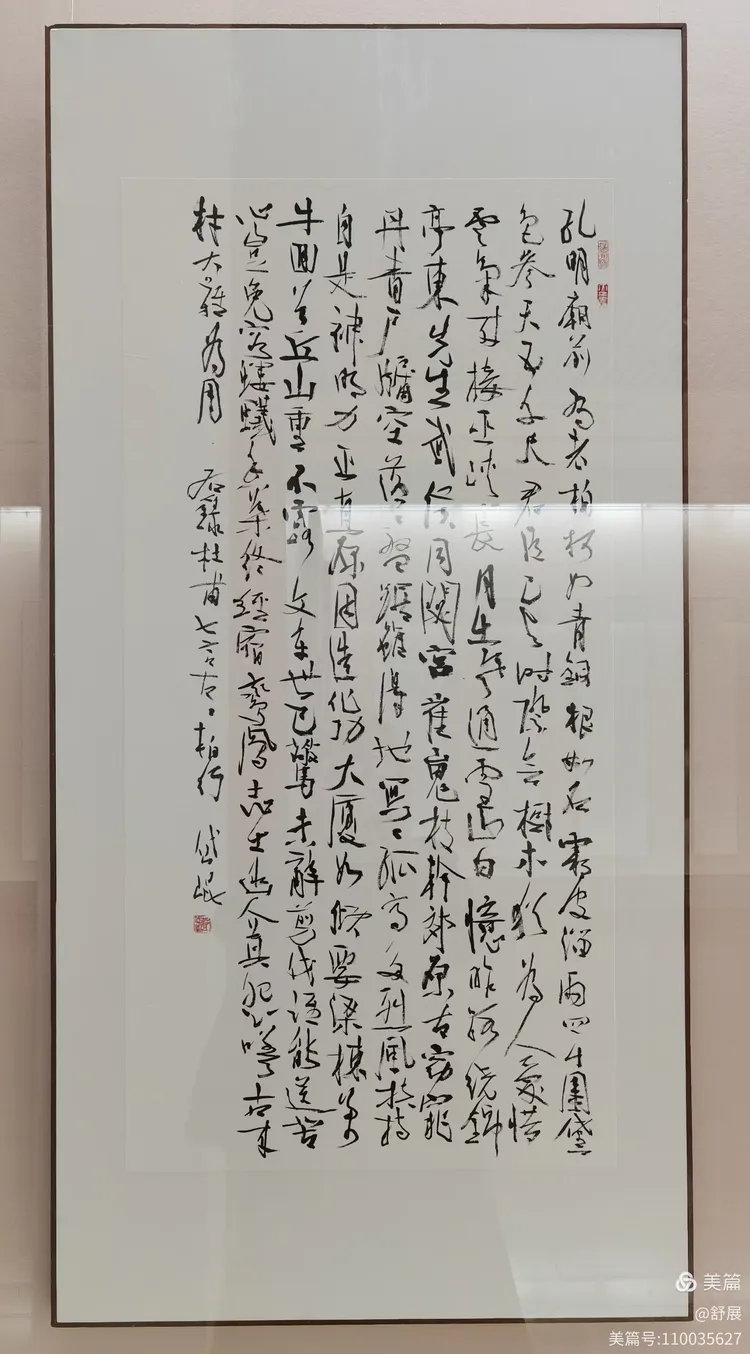 孔明廟前有老柏柯如青銅根如石霜皮溜雨四十圍黛
色參天二千尺君臣已與時際會樹木猶為人愛惜
雲來氣接巫峽長月出寒通雪山白憶昨路繞錦
亭東先主武侯同閟宮崔嵬枝幹郊原古窈窕
丹青戶牖空落〻盤踞雖得地冥〻孤高多烈風扶持
自是神明力正直原因造化功大廈如傾要梁棟萬
牛回首丘山重不露文章世已驚未辭剪伐誰能送苦
心豈免容螻蟻香葉終經宿鸞鳳志士幽人莫怨嗟古來
材大難為用 右錄杜甫七言古〻柏行 岱岷
美篇
@舒展
美篇号:110035627